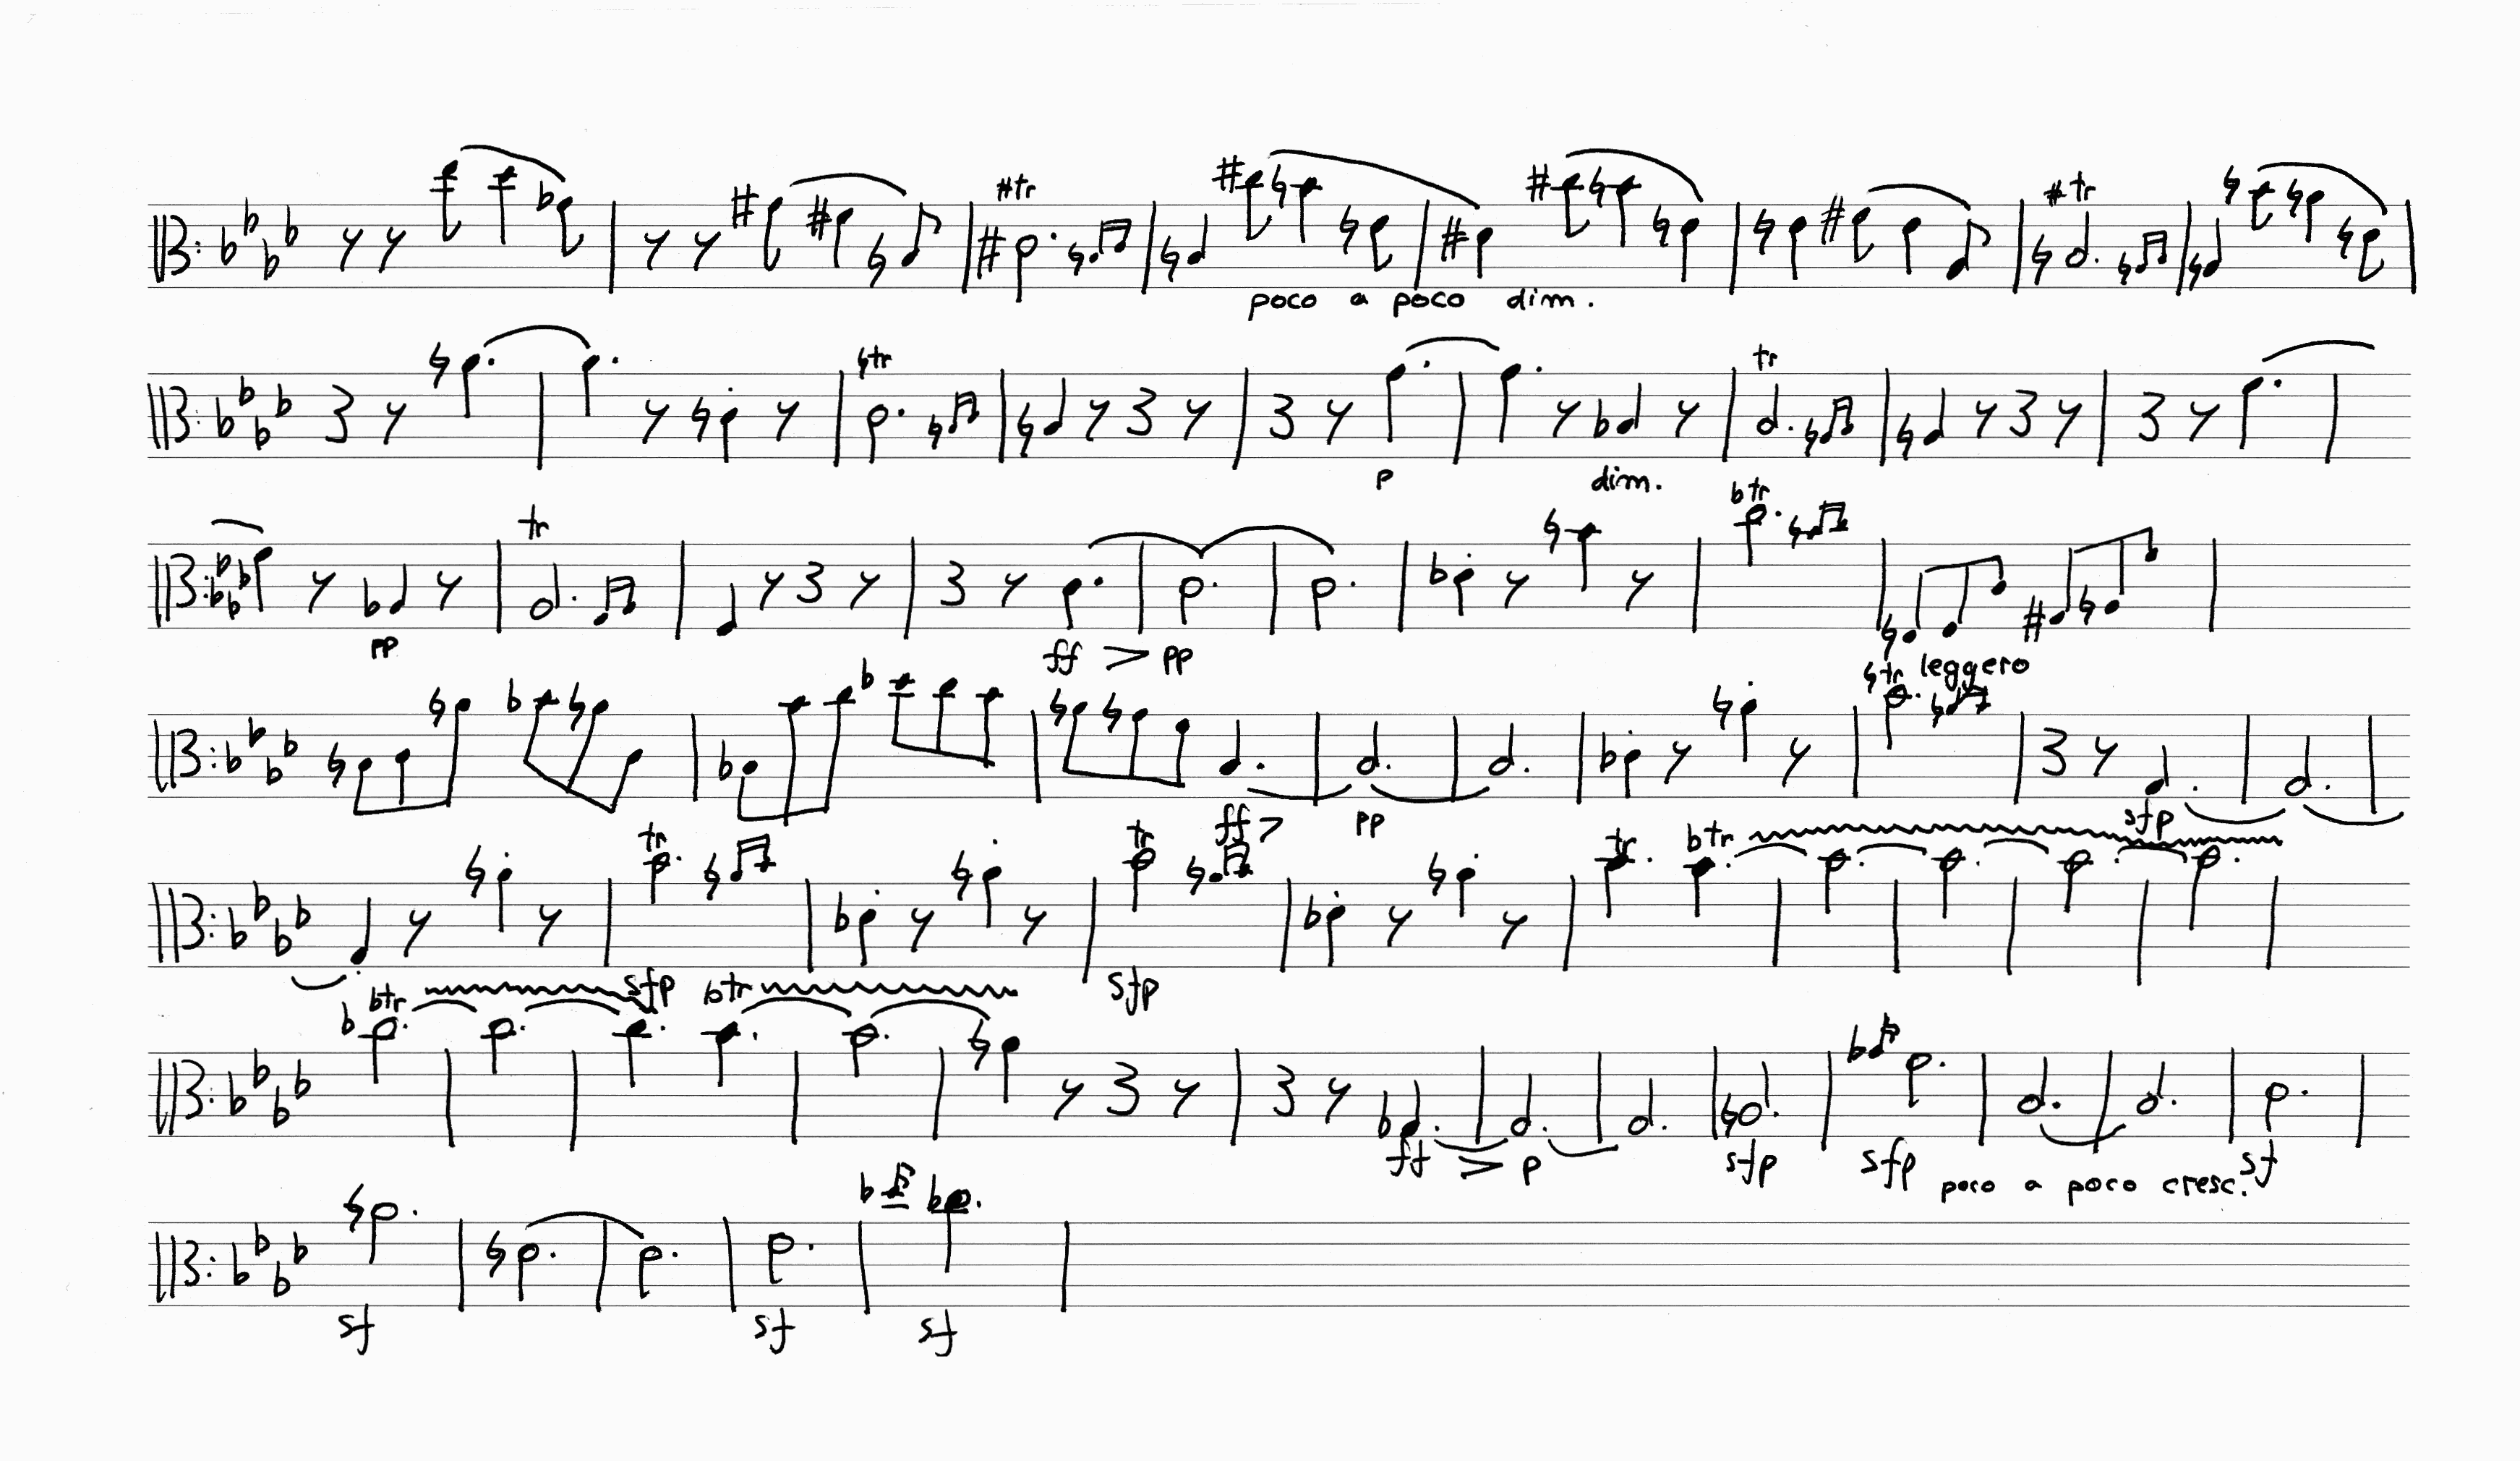 tr tr
poco a poco dim.
tr tr
p dim.
tr tr
pp ff pp leggero
tr
ff pp sfp
tr tr tr tr
sfp sfp
tr tr
ff p sfp sfp poco a poco cresc. sf
sf sf sf